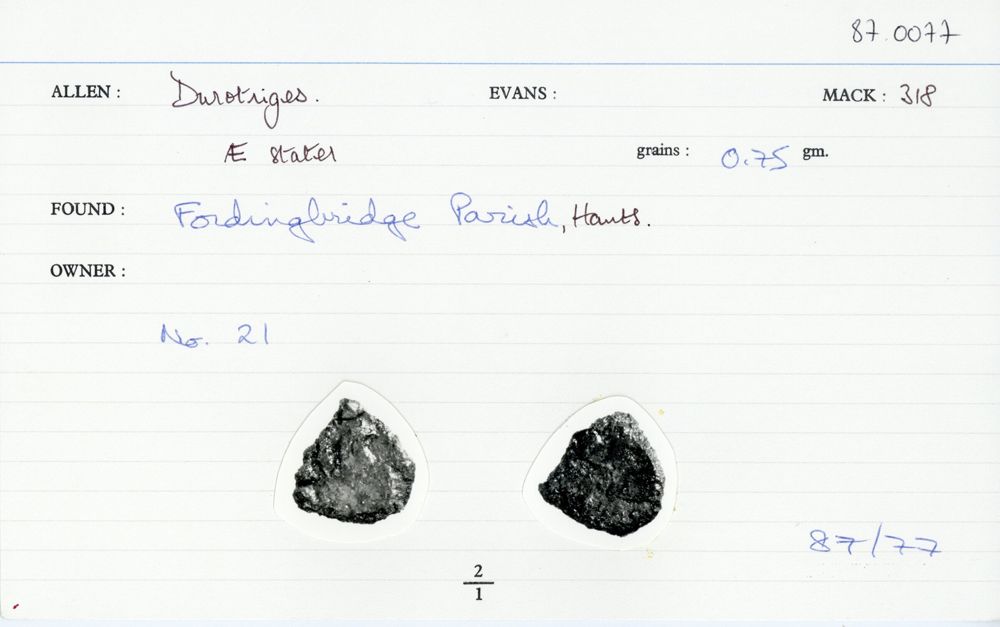 87.0077
ALLEN : Durotriges. EVANS : MACK : 318
Æ stater grains : 0.75 gm.
FOUND : Fordingbridge Parish, Hants.
OWNER :
No. 21
87/77
2
1